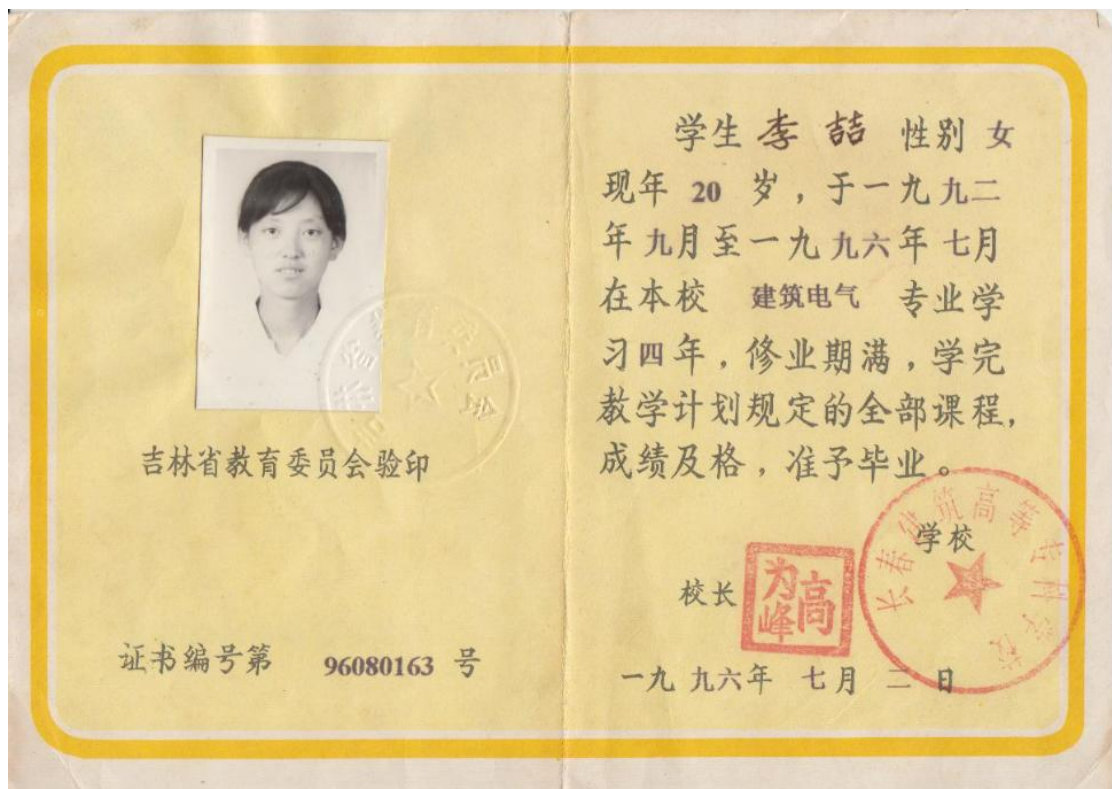 吉林省教育委员会验印
证书编号第 96080163 号
学生 李 喆 性别 女
现年 20 岁，于一九九二
年九月至一九九六年七月
在本校 建筑电气 专业学
习四年，修业期满，学完
教学计划规定的全部课程，
成绩及格，准予毕业。
长春建筑高等专科学校
学校
校长 高为峰
一九九六年 七月 二 日